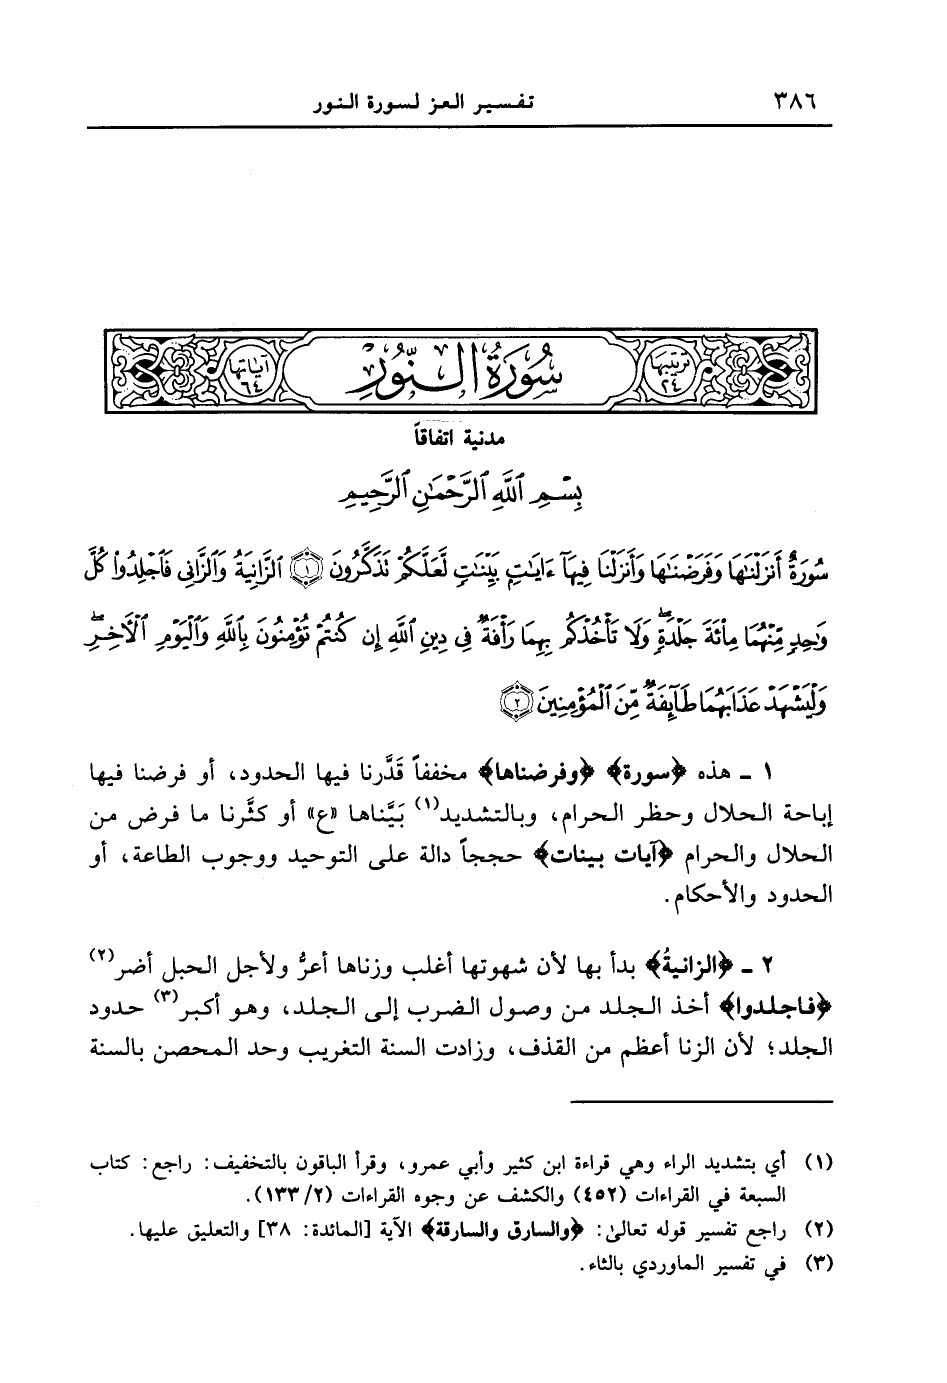 ٣٨٦ تفسير العز لسورة النور
ترتيبها ٢٤ سُورَةُ النُّورِ آياتها ٦٤
مدنية اتفاقاً
بِسْمِ ٱللَّهِ ٱلرَّحْمَٰنِ ٱلرَّحِيمِ
سُورَةٌ أَنزَلْنَٰهَا وَفَرَضْنَٰهَا وَأَنزَلْنَا فِيهَآ ءَايَٰتٍۭ بَيِّنَٰتٍ لَّعَلَّكُمْ تَذَكَّرُونَ ١ ٱلزَّانِيَةُ وَٱلزَّانِى فَٱجْلِدُوا۟ كُلَّ
وَٰحِدٍ مِّنْهُمَا مِا۟ئَةَ جَلْدَةٍ ۖ وَلَا تَأْخُذْكُم بِهِمَا رَأْفَةٌ فِى دِينِ ٱللَّهِ إِن كُنتُمْ تُؤْمِنُونَ بِٱللَّهِ وَٱلْيَوْمِ ٱلْءَاخِرِ ۖ
وَلْيَشْهَدْ عَذَابَهُمَا طَآئِفَةٌ مِّنَ ٱلْمُؤْمِنِينَ ٢
١ ـ هذه ﴿سورة﴾ ﴿وفرضناها﴾ مخففاً قَدَّرنا فيها الحدود، أو فرضنا فيها
إباحة الحلال وحظر الحرام، وبالتشديد(١) بَيَّناها «ع» أو كثَّرنا ما فرض من
الحلال والحرام ﴿آيات بينات﴾ حججاً دالة على التوحيد ووجوب الطاعة، أو
الحدود والأحكام.
٢ ـ ﴿الزانيةُ﴾ بدأ بها لأن شهوتها أغلب وزناها أعرُّ ولأجل الحبل أضر(٢)
﴿فاجلدوا﴾ أخذ الجلد من وصول الضرب إلى الجلد، وهو أكبر(٣) حدود
الجلد؛ لأن الزنا أعظم من القذف، وزادت السنة التغريب وحد المحصن بالسنة
(١) أي بتشديد الراء وهي قراءة ابن كثير وأبي عمرو، وقرأ الباقون بالتخفيف: راجع: كتاب
السبعة في القراءات (٤٥٢) والكشف عن وجوه القراءات (١٣٣/٢).
(٢) راجع تفسير قوله تعالىٰ: ﴿والسارق والسارقة﴾ الآية [المائدة: ٣٨] والتعليق عليها.
(٣) في تفسير الماوردي بالثاء.